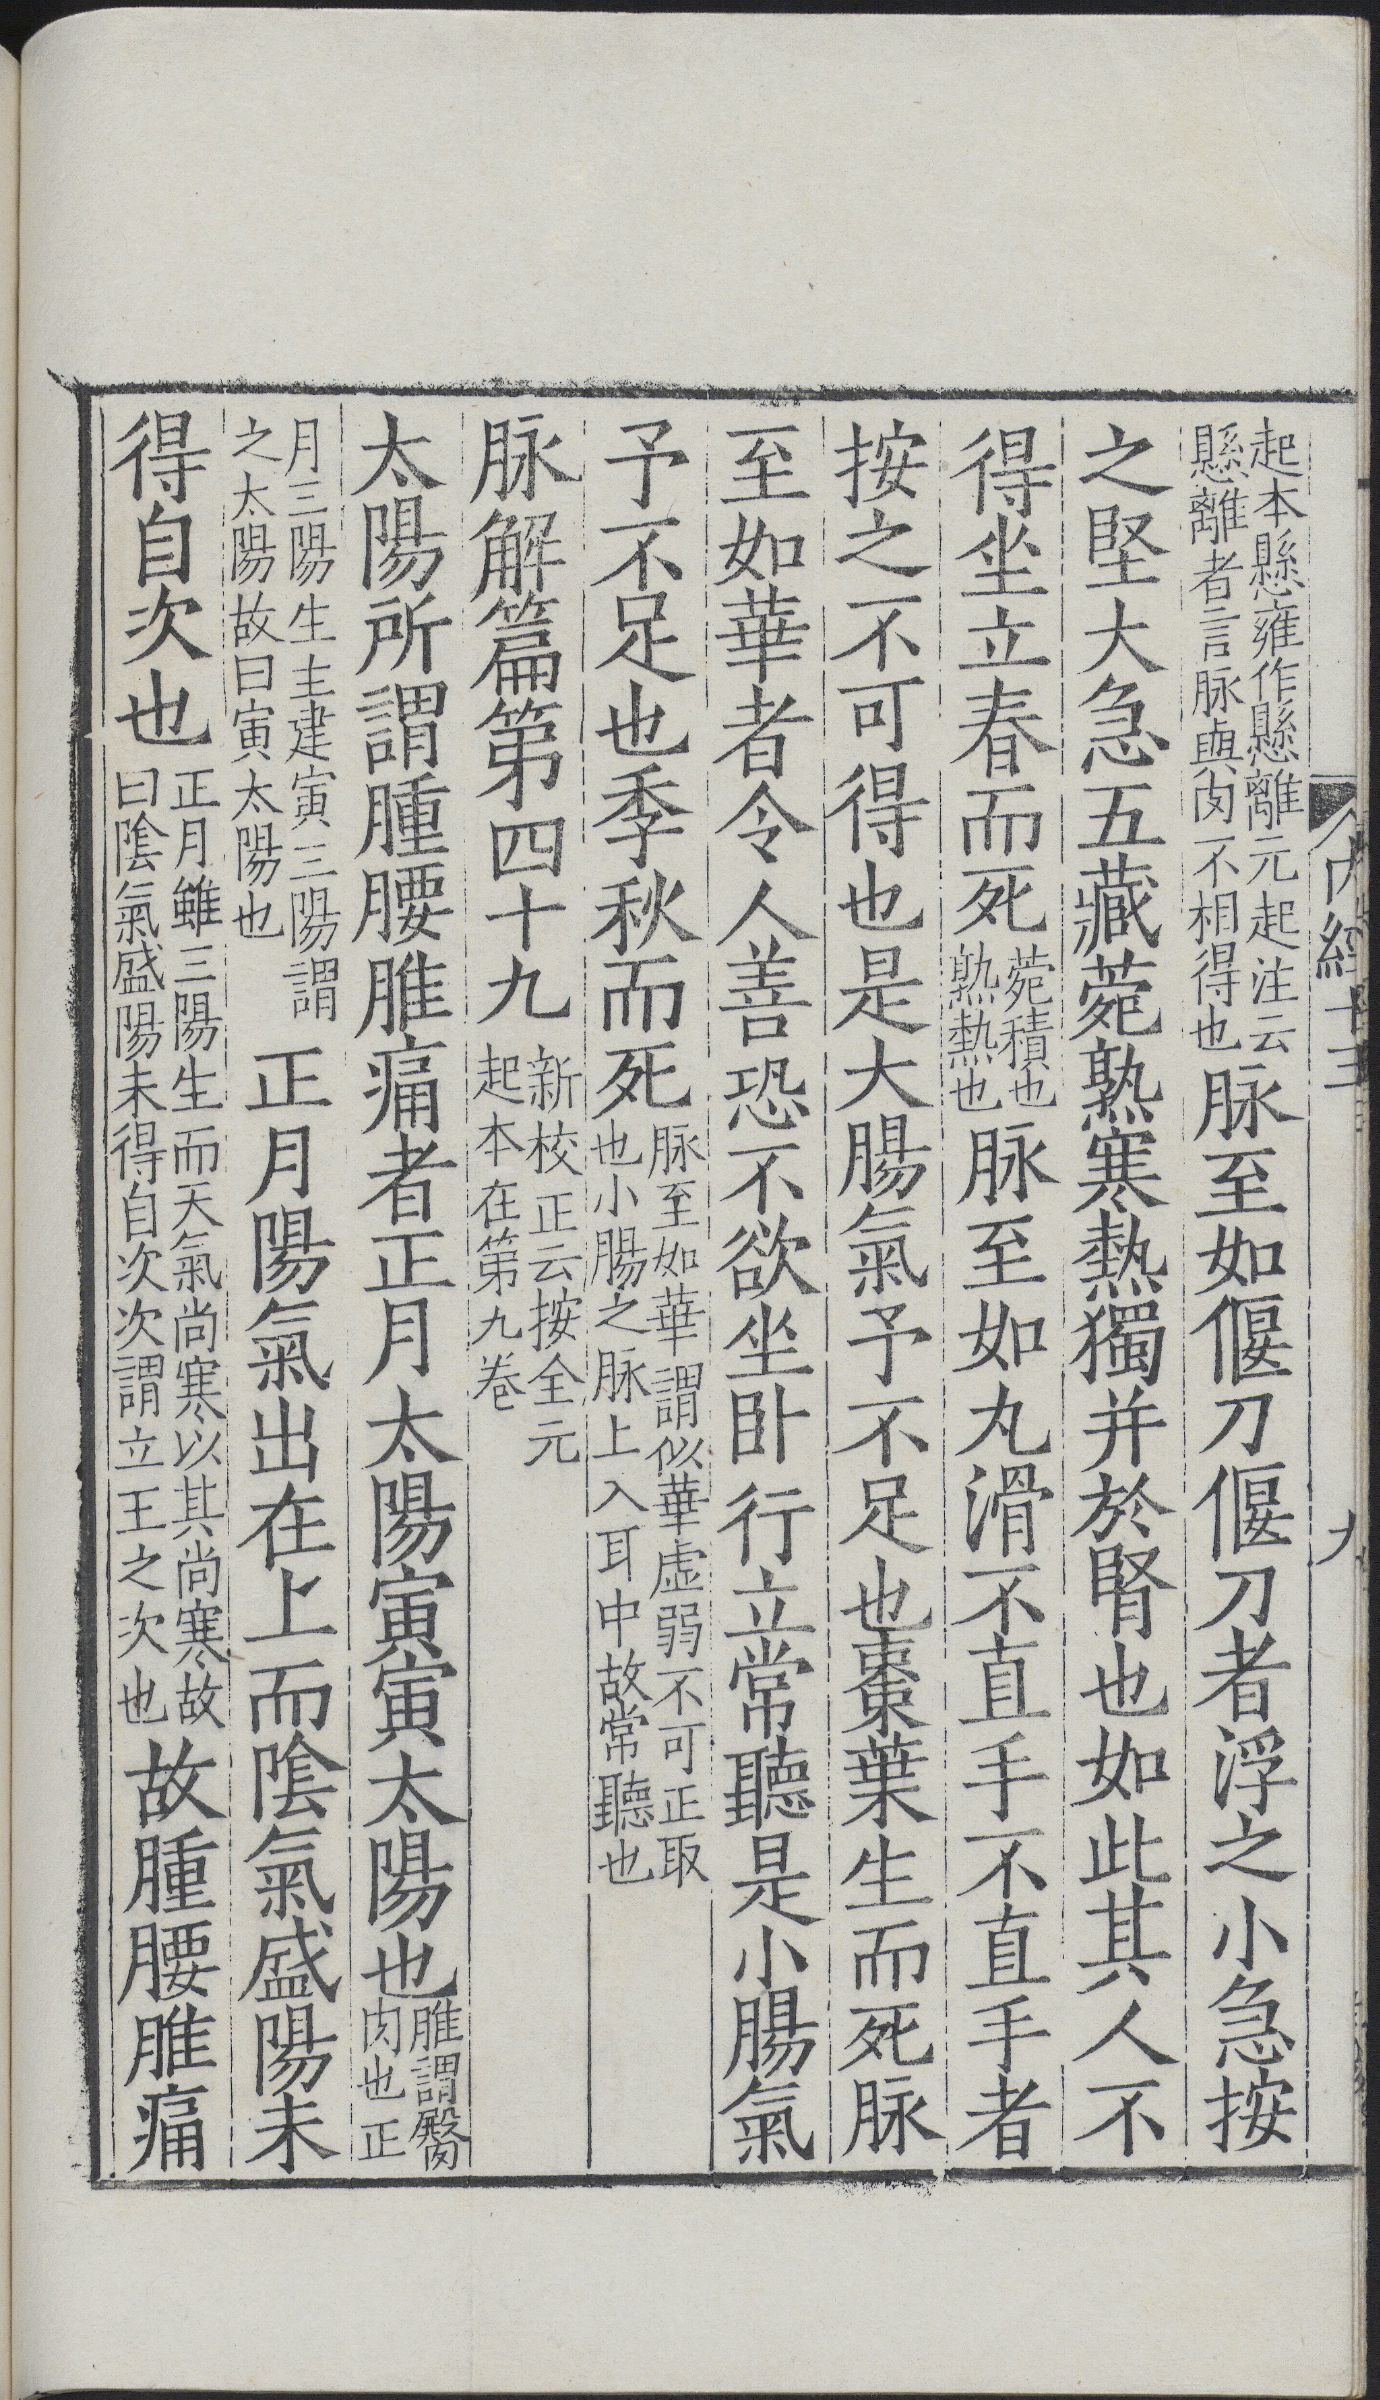 起本懸雍作懸離元起注云
懸離者言脉與肉不相得也
脉至如偃刀偃刀者浮之小急按
之堅大急五藏菀熟寒熱獨并於腎也如此其人不
得坐立春而死
菀積也
熟熱也
脉至如丸滑不直手不直手者
按之不可得也是大腸氣予不足也棗葉生而死脉
至如華者令人善恐不欲坐卧行立常聽是小腸氣
予不足也季秋而死
脉至如華謂似華虛弱不可正取
也小腸之脉上入耳中故常聽也
脉解篇第四十九
新校正云按全元
起本在第九卷
太陽所謂腫腰脽痛者正月太陽寅寅太陽也
脽謂臀
肉也正
月三陽生主建寅三陽謂
之太陽故曰寅太陽也
正月陽氣出在上而陰氣盛陽未
得自次也
正月雖三陽生而天氣尚寒以其尚寒故
曰陰氣盛陽未得自次次謂立王之次也
故腫腰脽痛